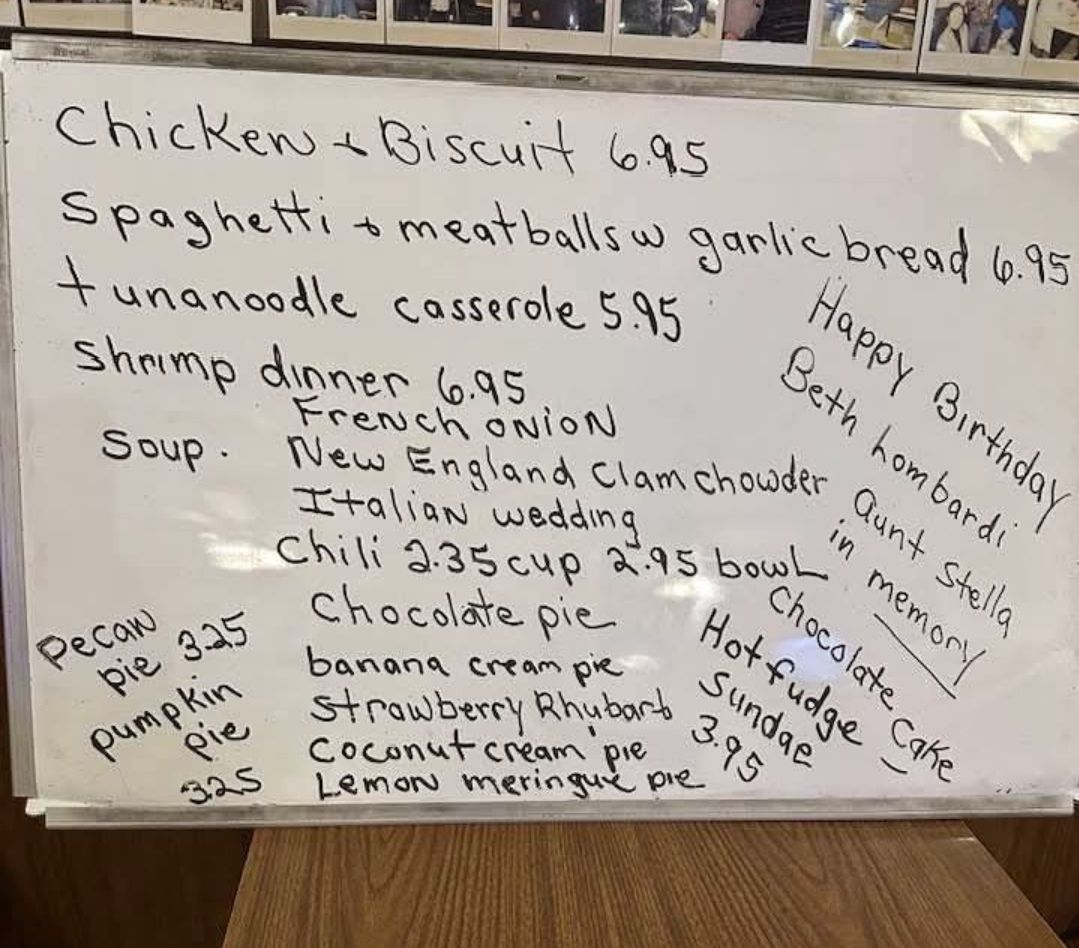 Chicken + Biscuit 6.95
Spaghetti + meatballs w garlic bread 6.95
tunanoodle casserole 5.95
Shrimp dinner 6.95
Soup. French onion
New England Clam chowder
Italian wedding
Chili 2.35 cup 2.95 bowl
Chocolate pie
banana cream pie
Strawberry Rhubarb
Coconut cream pie
Lemon meringue pie
Pecan
pie 3.25
pumpkin
pie
3.25
Happy Birthday
Beth Lombardi
Aunt Stella
in memory
Chocolate Cake
Hot fudge
Sundae
3.95